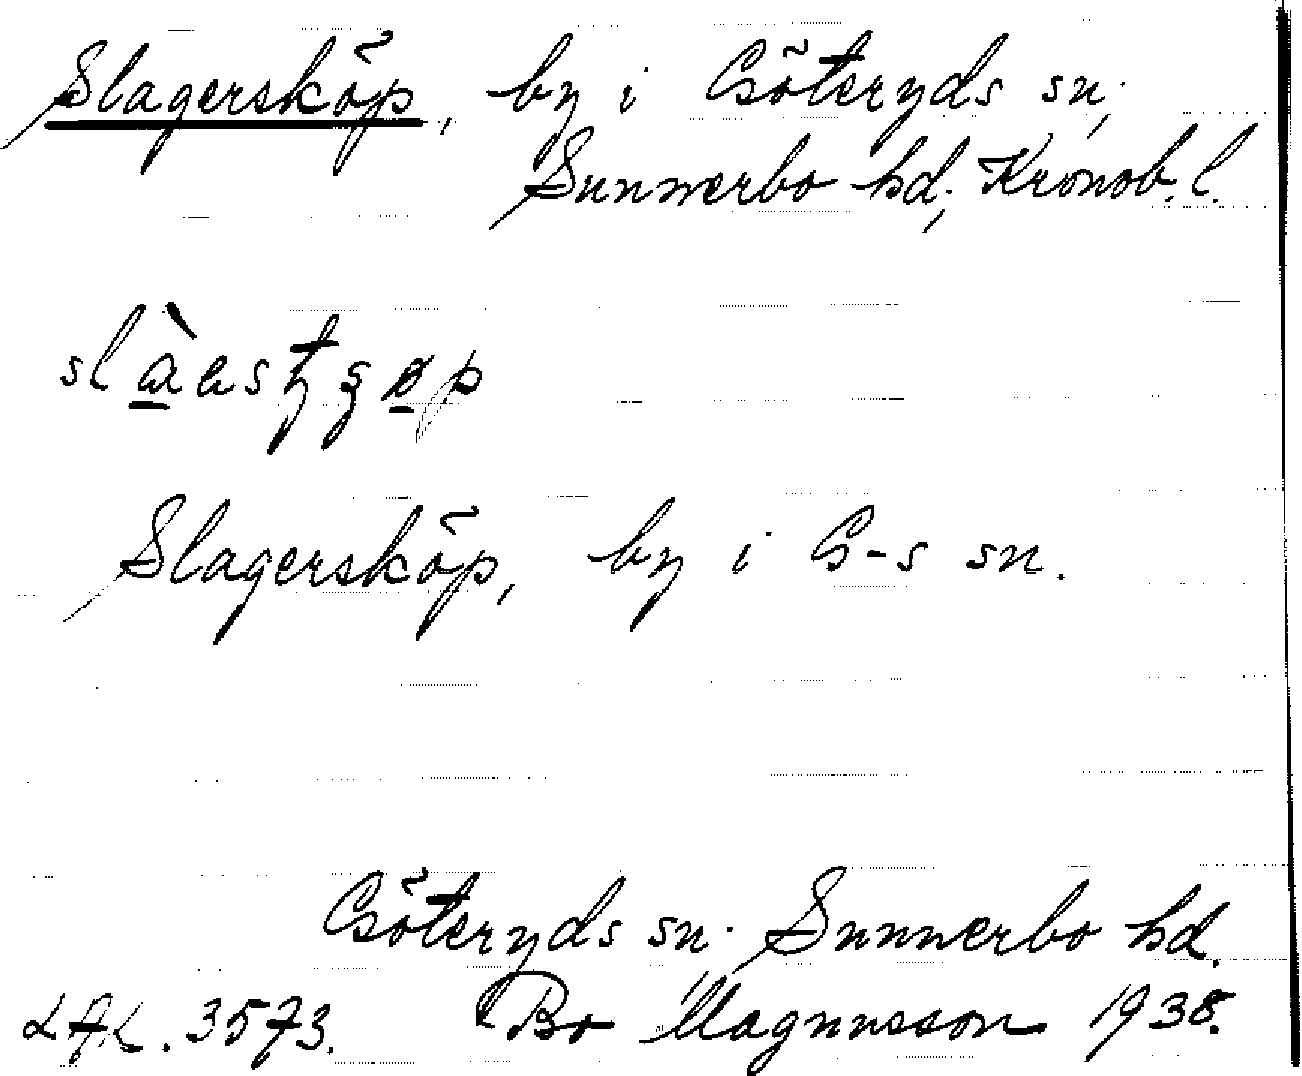 Slagersköp, by i Göteryds sn;
Sunnerbo hd; Kronob. l.
Slagersköp, by i G-s sn.
Göteryds sn. Sunnerbo hd.
LAL. 3573. Bo Magnusson 1938.